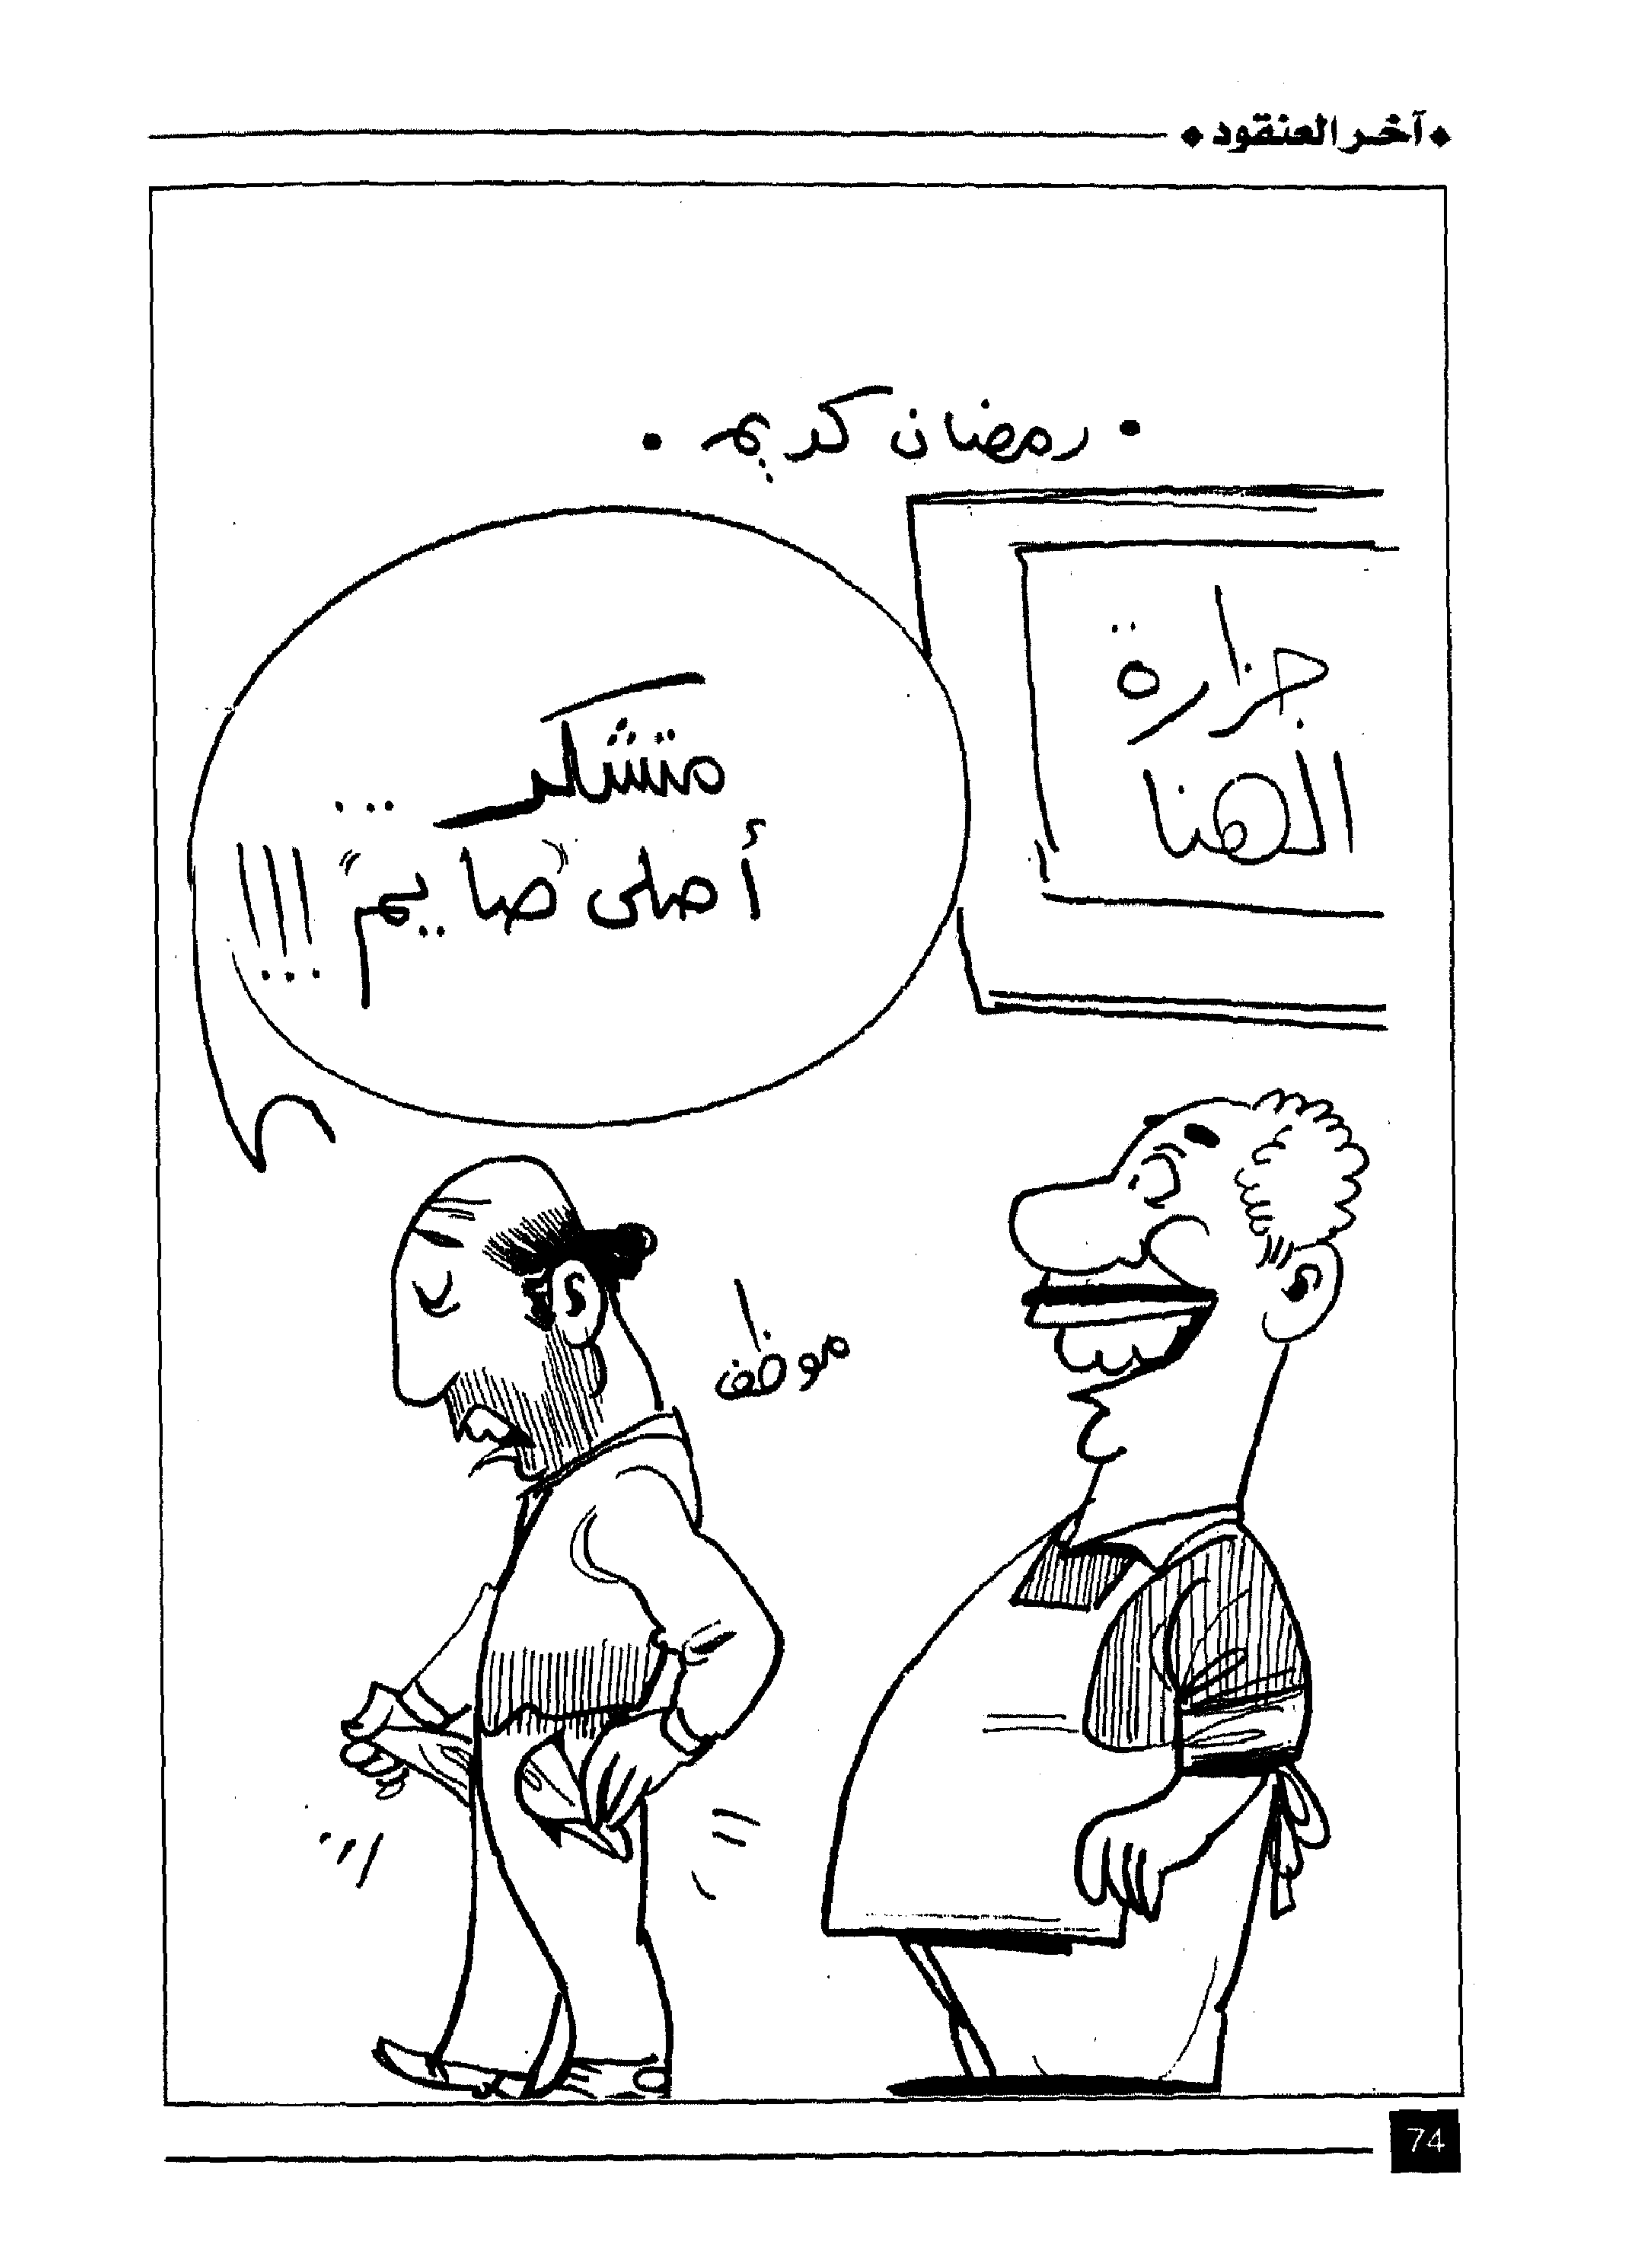 آخر العنقود
• رمضان كريم •
جزارة
الهنا
متشكر ...
أصلى "صايم" !!!
موظف
74